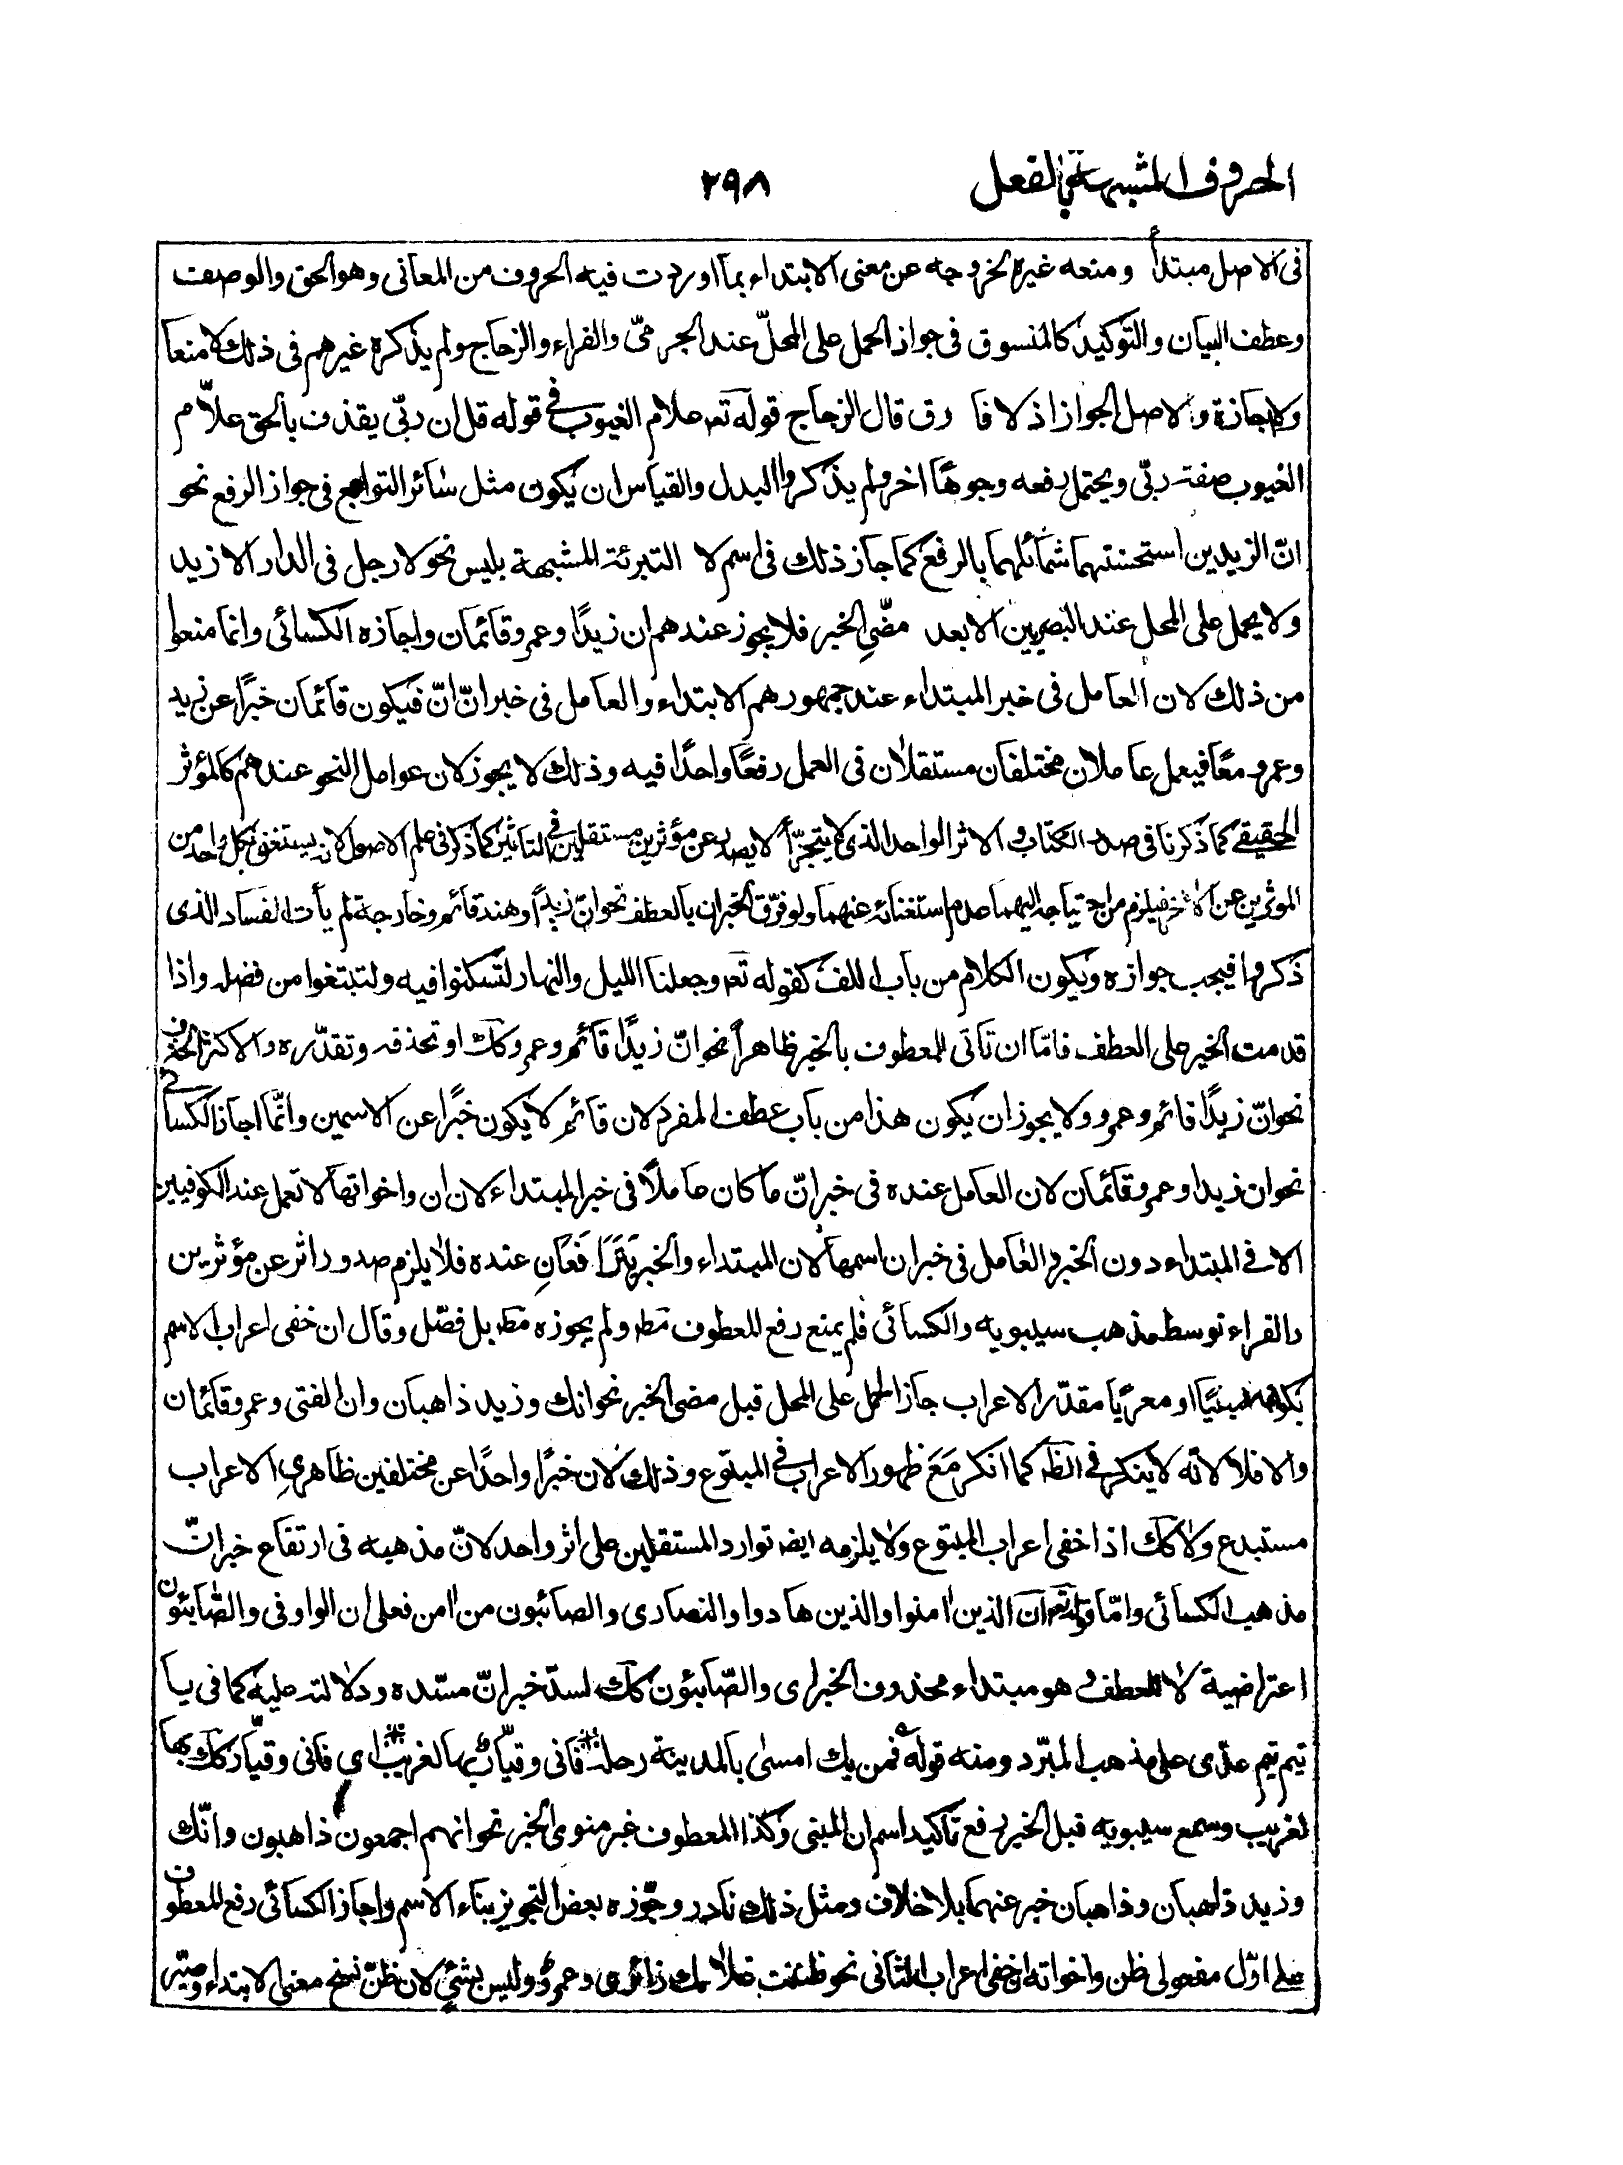 الحروف المشبهة بالفعل
٢٩٨
فى الاصل مبتدأ ومنعه غيره لخروجه عن معنى الابتداء بما اوردت فيه الحروف من المعانى وهو الحق والوصف
وعطف البيان والتوكيد كالمنسوق فى جواز الحمل على المحلّ عند الجرمىّ والفراء والزجاج ولم يذكره غيرهم فى ذلك لا منعاً
ولا اجازة والاصل الجواز اذ لا فارق قال الزجاج قوله تعـ علام الغيوب فى قوله قل ان ربّى يقذف بالحق علاّم
الغيوب صفة ربّى ويحتمل رفعه وجوهًا اخر ولم يذكروا البدل والقياس ان يكون مثل سائر التوابع فى جواز الرفع نحو
انّ الزيدين استحسنتهما شمائلهما بالرفع كما جاز ذلك فى اسم لا التبرئة المشبهة بليس نحو لا رجل فى الدار الا زيد
ولا يحمل على المحل عند البصريين الا بعد مضّى الخبر فلا يجوز عندهم ان زيدًا وعمرو قائمان واجازه الكسائى وانما منعوا
من ذلك لان العامل فى خبر المبتداء عند جمهورهم الابتداء والعامل فى خبر انّ انّ فيكون قائمان خبرًا عن زيد
وعمرو معًا فيعمل عاملان مختلفان مستقلان فى العمل رفعًا واحدًا فيه وذلك لا يجوز لان عوامل النحو عندهم كالمؤثر
الحقيقى كما ذكرنا فى صدر الكتاب والاثر الواحد الذى لا يتجزّأ لا يصدر عن مؤثرين مستقلين فى التاثير كما ذكر فى علم الاصول لانه يستغنى بكل واحد من
الموثرين عن الاخر فيلزم من احتياجه اليهما عدم استغنائه عنهما ولو فرّق الخبران بالعطف نحو انّ زيدًا وهند قائم وخارجة لم يأت الفساد الذى
ذكروا فيجب جوازه ويكون الكلام من باب اللف كقوله تعـ وجعلنا الليل والنهار لتسكنوا فيه ولتبتغوا من فضله واذا
قدمت الخبر على العطف فامّا ان تاتى للمعطوف بالخبر ظاهراً نحو انّ زيدًا قائم وعمرو كك او تحذفه وتقدّره والاكثر الحذف
نحو انّ زيدًا قائم وعمرو ولا يجوز ان يكون هذا من باب عطف المفرد لان قائم لا يكون خبرًا عن الاسمين وانّما اجاز الكسائى
نحو ان زيدا وعمرو قائمان لان العامل عنده فى خبر انّ ما كان عاملاً فى خبر المبتداء لان ان واخواتها لا تعمل عند الكوفيين
الا فى المبتداء دون الخبر والعامل فى خبر ان اسمها لان المبتداء والخبر يترافعان عنده فلا يلزم صدور اثر عن مؤثرين
والفراء توسط مذهب سيبويه والكسائى فلم يمنع رفع للعطوف مطـ ولم يجوزه مطـ بل فصّل وقال ان خفى اعراب الاسم
بكونه مبنيًا او معربًا مقدّر الاعراب جاز الحمل على المحل قبل مضى الخبر نحو انك وزيد ذاهبان وان الفتى وعمرو قائمان
والا فلا لانّه لا ينكر فى الظـ كما انكر مَعَ ظهور الاعراب فى المبتوع وذلك لان خبرًا واحدًا عن مختلفين ظاهرى الاعراب
مستبدع ولا كك اذا خفى اعراب المبتوع ولا يلزمه ايضـ توارد المستقلين على اثر واحد لانّ مذهبه فى ارتفاع خبر انّ
مذهب الكسائى وامّا قوله تعـ ان الذين امنوا والذين هادوا والنصارى والصائبون من امن فعلى ان الواو فى والصّابئون
اعتراضية لا للعطف وهو مبتداء محذوف الخبر اى والصّابئون كك لسدّ خبر انّ مسّده ودلالته عليه كما فى يا
تيم تيم عدّى على مذهب المبرّد ومنه قوله فمن يك امسىٰ بالمدينة رحله * فانى وقيّارٌ بها لغريب * اى فانى وقيّار كك بها
لغريب وسمع سيبويه قبل الخبر رفع تاكيد اسم ان المبنى وكذا المعطوف غير منوى الخبر نحو انهم اجمعون ذاهبون وانّك
وزيد ذاهبان وذاهبان خبر عنهما بلا خلاف ومثل ذلك نادر وجّوزه بعض التجويز بناء الاسم واجاز الكسائى رفع للمعطوف
على اوّل مفعولى ظن واخواته ان خفى اعراب الثانى نحو ظننت غلامك زائرى وعمرو وليس بشئ لان ظنّ نسخ معنى الابتداء وصيّر